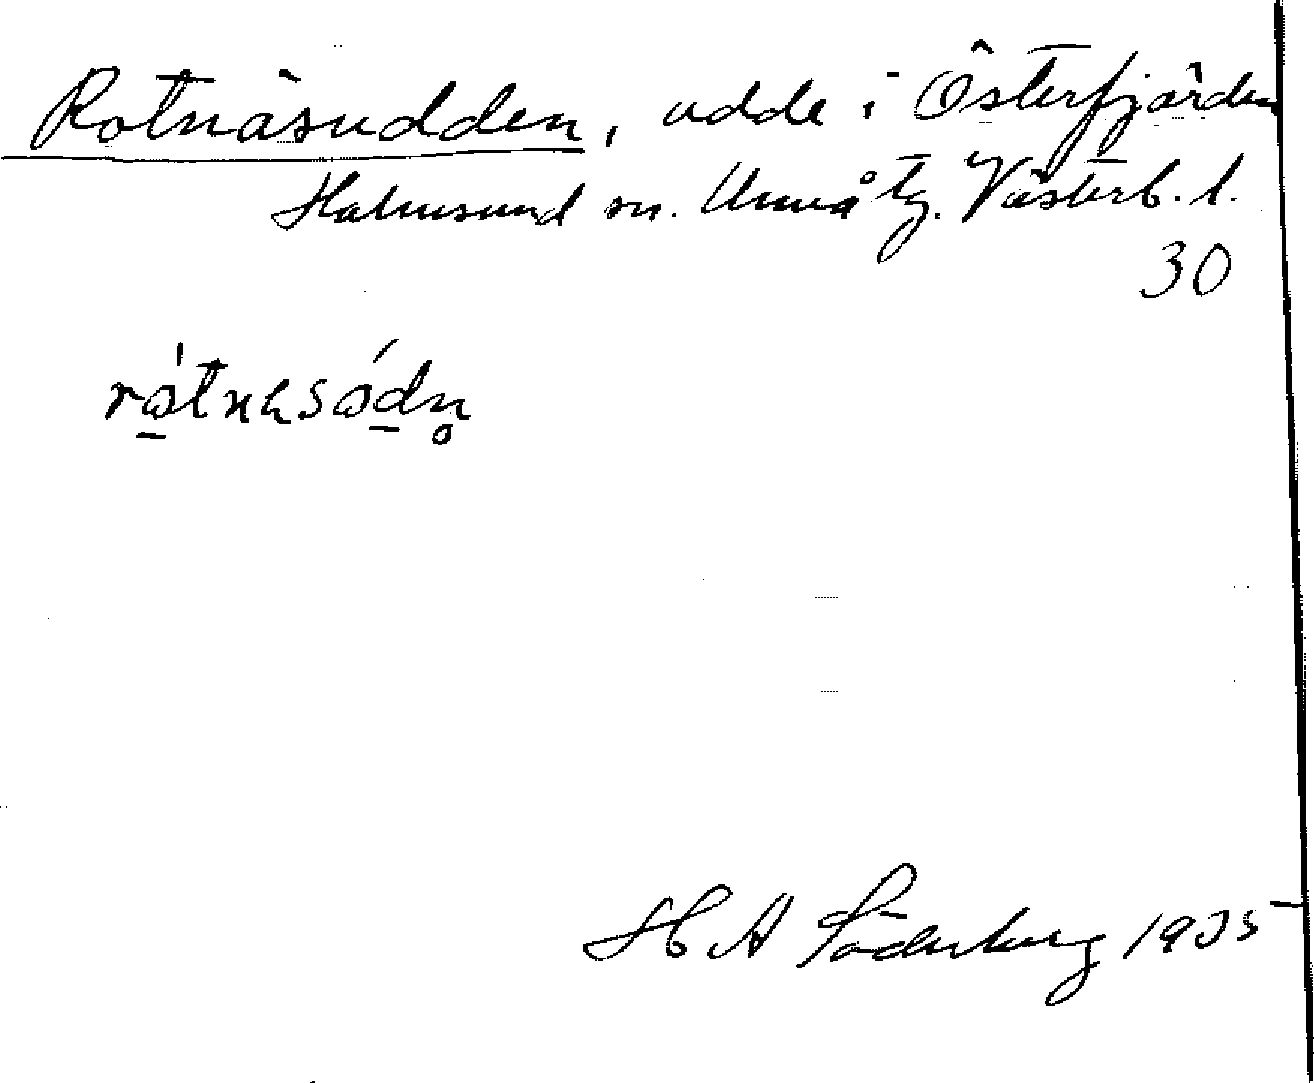 Rotnäsudden, udde i Österfjärden
Holmsund sn. Umeå tg. Västerb. l.
30
H A Söderberg 1935